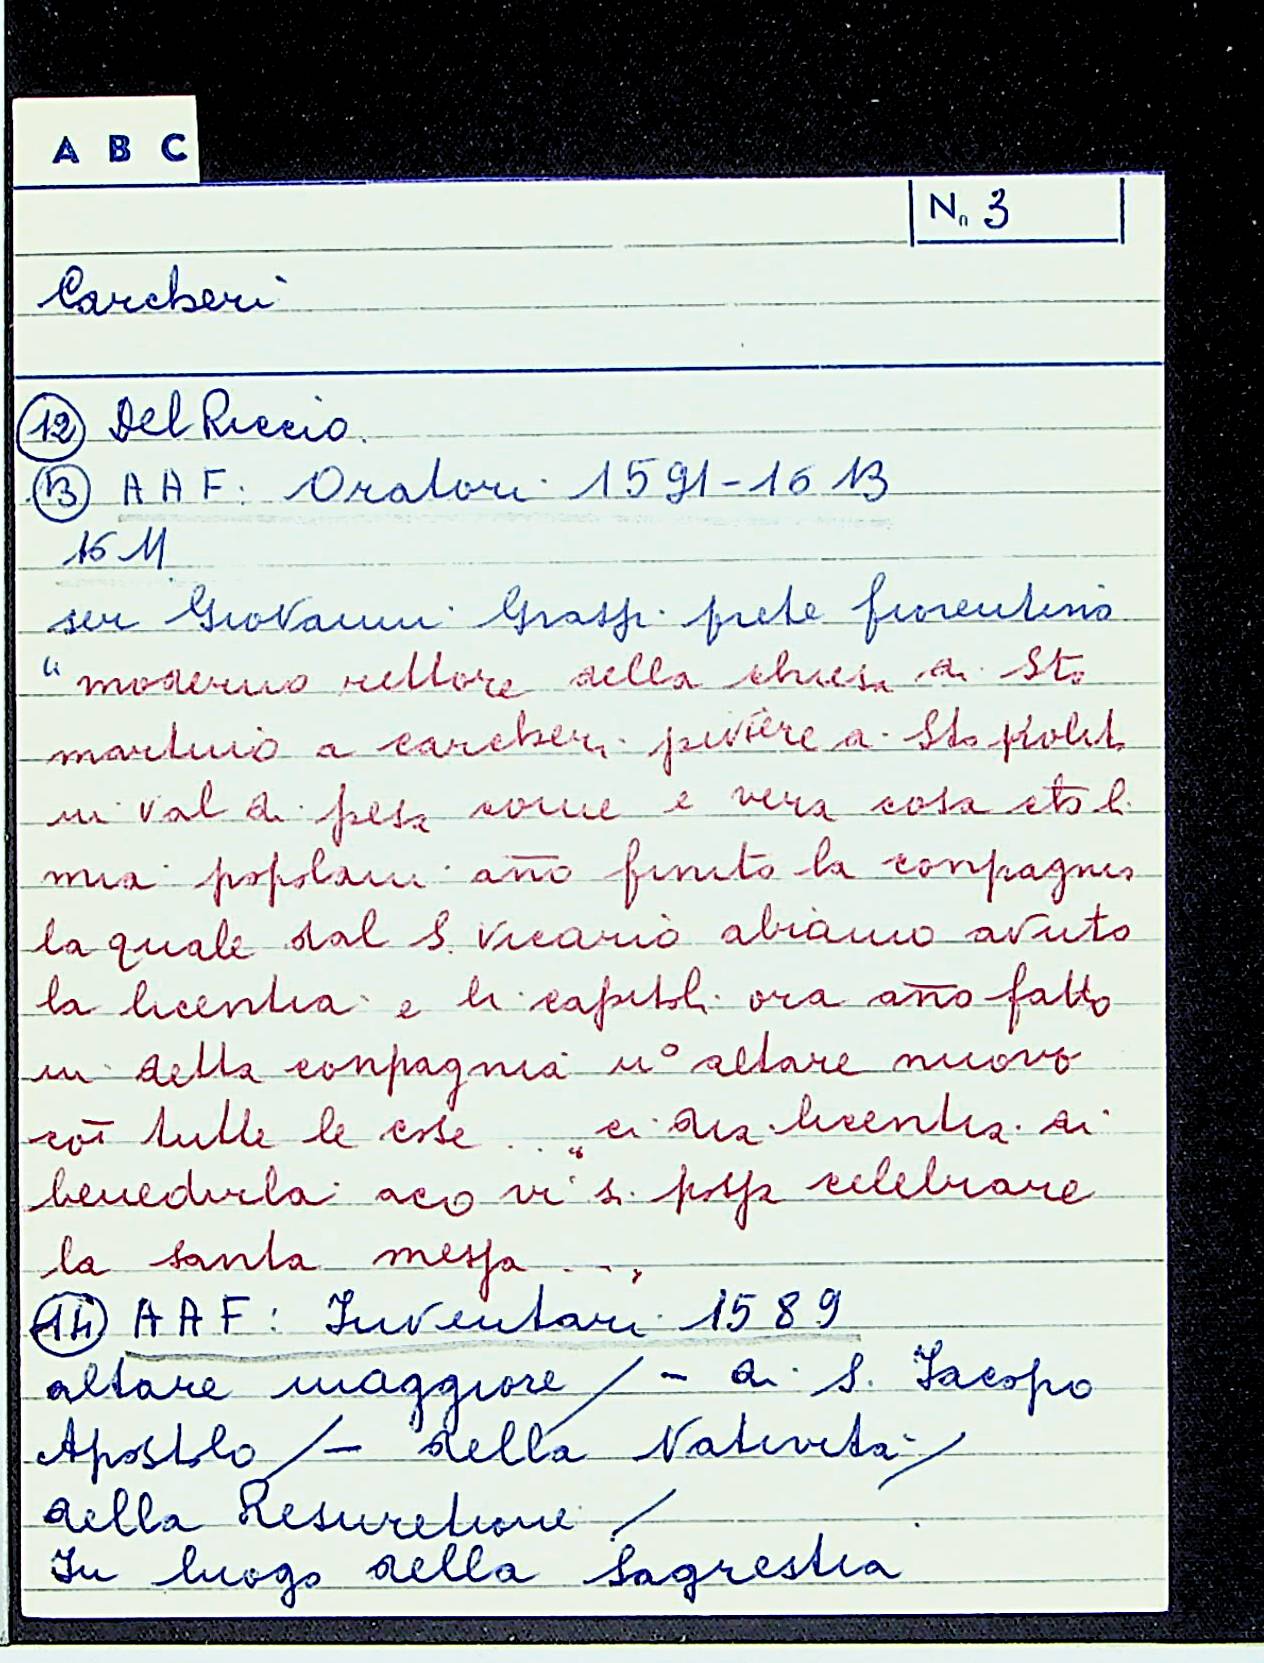 A B C
N. 3
Carcheri
12 Del Riccio.
13 AAF: Oratori 1591-1613
1611
ser Giovanni Grassi prete fiorentino
"moderno rettore della chiesa di Sto
martino a carcheri piviere a Sto
in val di pesa come e vera cosa che li
mia popolani año finito la conpagnia
la quale dal S. Vicario abiamo avuto
la licentia e li capitoli ora año fatto
in detta conpagnia uº altare nuovo
co̅ tutte le cose ... "ci dia licentia di
benedirla acò vi si possa celebrare
la santa messa ...,
14 AAF: Inventari 1589
altare maggiore / - di S. Jacopo
Apostolo / - della Natività /
della Resuretione /
In luogo della sagrestia